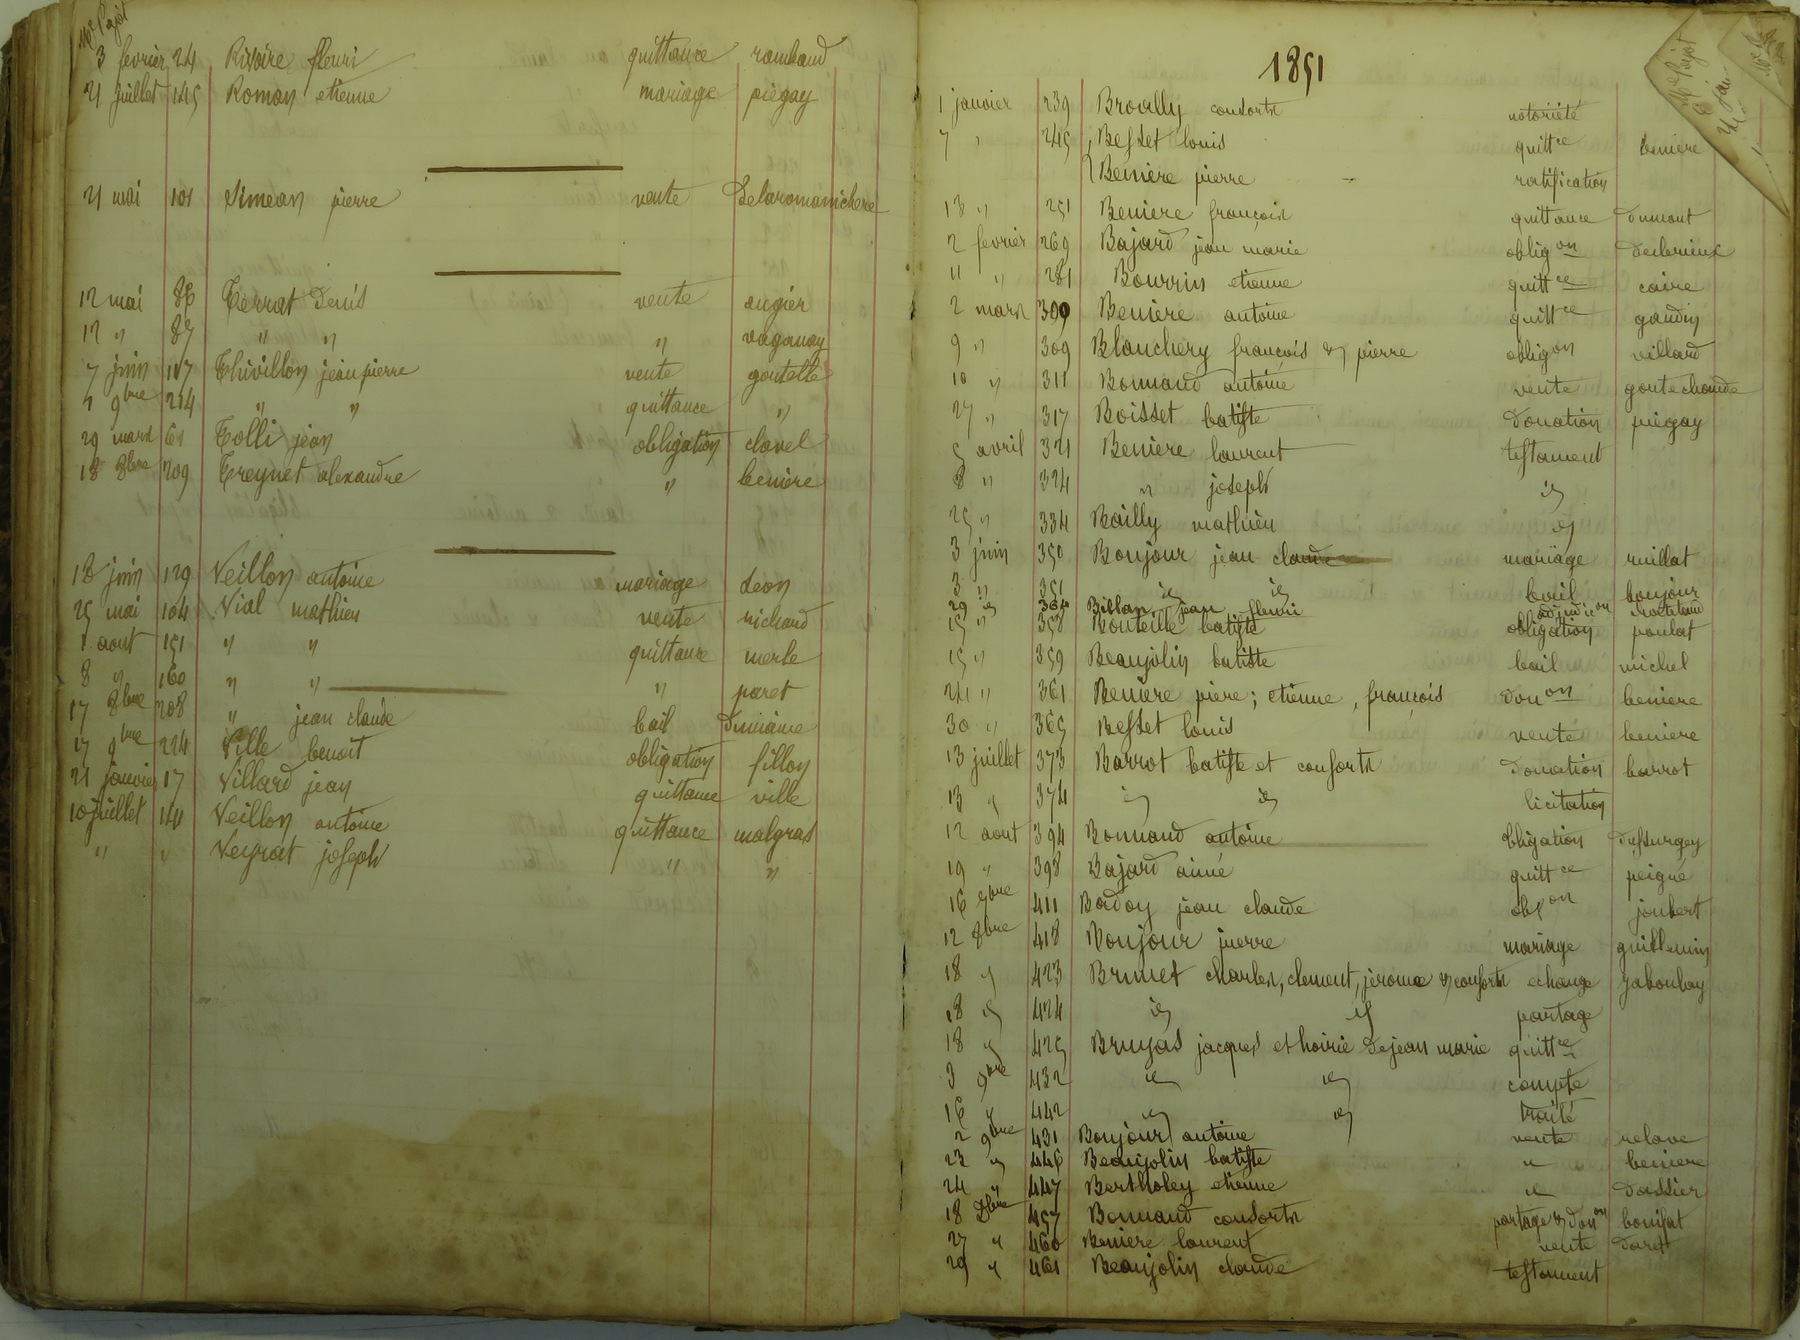 Me Pajot
3 fevrier 24 Rivoire fleuri quittance rambaud
21 juillet 145 Roman etienne mariage piegay
21 mai 101 Simean pierre vente Delaromanichere
12 mai 86 Terrat Denis vente augier
12 " 87 " " " vaganay
7 juin 117 Thivillon jean pierre vente goutelle
4 9bre 214 " " quittance "
29 mars 61 Tolli jean obligation clavel
18 8bre 209 Treynet alexandre " beniere
18 juin 129 Veillon antoine mariage Leon
25 mai 104 Vial mathieu vente richard
1 aout 151 " " quittance merle
8 " 160 " " " paret
17 8bre 208 " jean claude bail
17 9bre 224 Ville benoit obligation fillon
21 janvier 17 Villard jean quittance ville
10 juillet 141 Veillon antoine quittance malgras
" " Veyrat joseph " "
1851
Me Pajot
1 janvier 239 Broally consorts notoriété
7 " 245 Besset louis quittce beniere
Beniere pierre ratification
13 " 251 Beniere françois quittance dumont
2 fevrier 269 Bajard jean marie obligon
11 " 281 Bourrin etienne quittce caire
2 mars 300 Beniere antoine quittce gaudin
9 " 309 Blanchery françois & pierre obligon villard
10 " 311 Bonnand antoine vente goutechaude
27 " 317 Boisset batiste Donation piegay
5 avril 321 Beniere laurent testament
8 " 324 " joseph id
25 " 334 Bailly mathieu id
3 juin 350 Bonjour jean claude mariage ruillat
3 " 351 id id bail bonjour
29 id 364 Billan jean fleuri adjudicon
15 " 358 Bouteille batiste obligation poulat
15 " 359 Beaujolin batiste bail michel
24 " 361 Beniere piere; etienne, françois donon beniere
30 " 365 Besset louis vente beniere
13 juillet 373 Barrot batiste et consorts Donation barrot
13 " 374 id id licitation
12 aout 394 Bonnand antoine obligation Dessurgey
19 " 398 Bajard aimé quittce peigné
16 9bre 411 Badoy jean claude oblon joubert
12 8bre 418 Bonjour pierre mariage guillemin
18 " 423 Brunet charles, clement, jerome & consorts echange jaboulay
18 " 424 id id partage
18 " 425 Brujas jacques et hoirie De jean marie quittce
3 9bre 432 id id compte
16 " 442 id id traité
2 9bre 431 Bonjour antoine vente relave
23 " 446 Beaujolin batiste " beniere
24 " 447 Bertholey etienne " Dassier
18 Xbre 457 Bonnand consorts partage & Donon bonifat
27 " 460 Beniere laurent vente Daret
29 " 461 Beaujolin claude testament